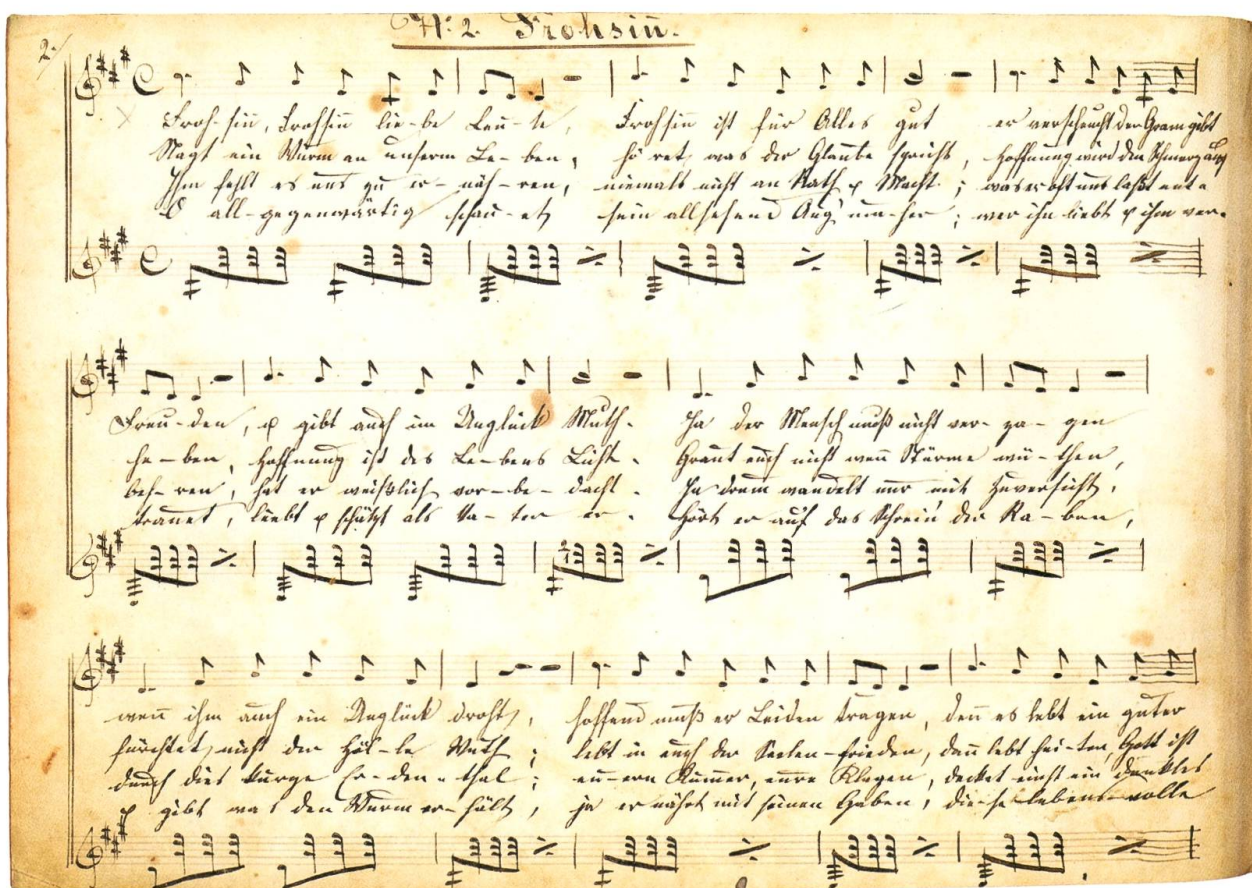 2.
No. 2. Frohsiñ.
Froh-siñ, Frohsiñ lie-be Leu-te, Frohsiñ ist für Alles gut er verscheucht der Gram gibt
Nagt ein Wurm an unserm Le-ben, hö ret, was der Glaube spricht, Hoffnung wird den Schmerz
Ihm fehlt es uns zu er-näh-ren, niemals nicht an Rath & Macht; was er oft uns laßt ent=
all-gegenwärtig schau-et, sein allsehend Aug' um-her; wer ihn liebt & ihm ver-
Freu-den, & gibt auch im Unglück Muth. Ja der Mensch muß nicht ver-za-gen
he-ben, Hoffnung ist des Le-bens Licht. Graut euch nicht weñ Stürme wü-then,
beh-ren, hat er weißlich vor-be-dacht. Ja drum wandelt nur mit Zuversicht,
trauet, liebt & schützt als Va-ter er. Hört er auf das Schrein der Ra-ben,
weñ ihm auch ein Unglück droht, hoffend muß er Leiden tragen, deñ es lebt ein guter
fürchtet nicht der Höl-le Wuth; lebt in euch der Seelen-frieden, dañ lebt hei-ter, Gott ist
durch dies kurze Er-den-thal; eu-ern Kummer, eure Klagen, decket einst ein dunkles
& gibt was den Wurm er-hält, ja er nährt mit seinen Gaben, die-se lebens-volle